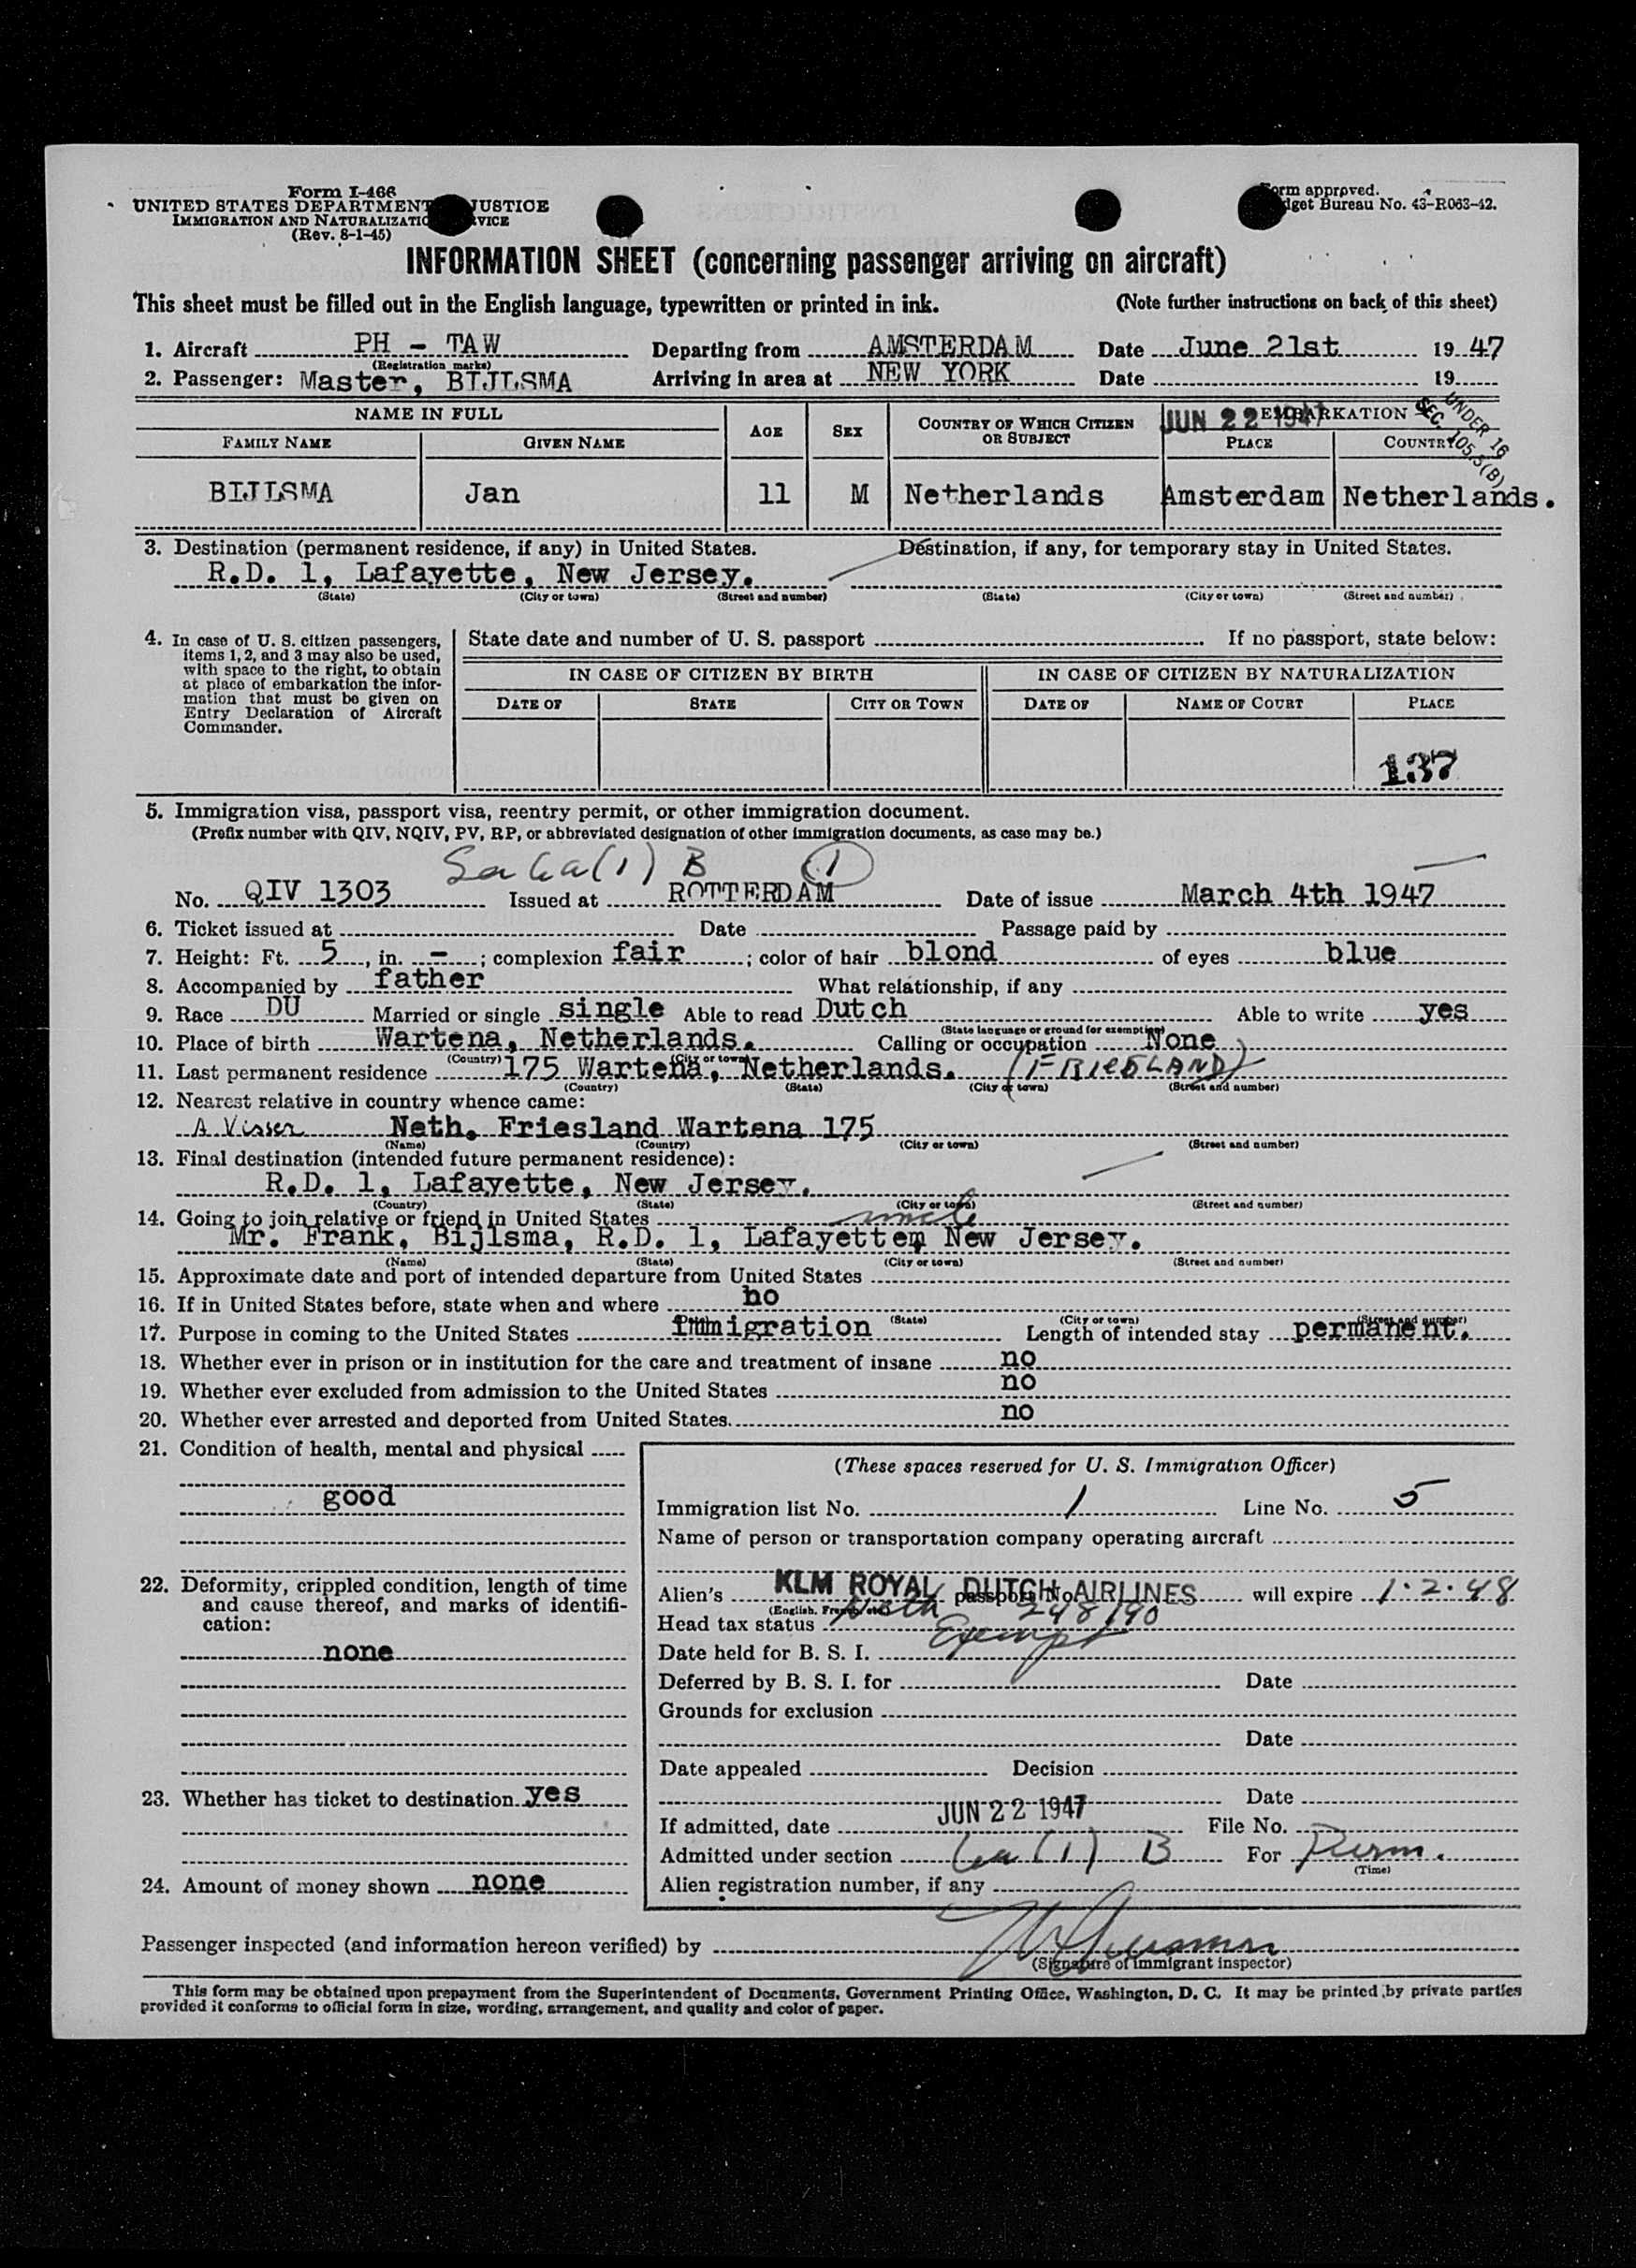 Form I-466
UNITED STATES DEPARTMENT JUSTICE
IMMIGRATION AND NATURALIZATIO VICE
(Rev. 8-1-45)
orm approved.
dget Bureau No. 43-R063-42.
INFORMATION SHEET (concerning passenger arriving on aircraft)
This sheet must be filled out in the English language, typewritten or printed in ink. (Note further instructions on back of this sheet)
1. Aircraft PH - TAW Departing from AMSTERDAM Date June 21st 19 47
(Registration marks)
2. Passenger: Master, BIJLSMA Arriving in area at NEW YORK Date 19
NAME IN FULL AGE SEX COUNTRY OF WHICH CITIZEN OR SUBJECT EMBARKATION
JUN 22 1947
UNDER 16
SEC. 105.5(B)
FAMILY NAME GIVEN NAME PLACE COUNTRY
BIJLSMA Jan 11 M Netherlands Amsterdam Netherlands.
3. Destination (permanent residence, if any) in United States. Destination, if any, for temporary stay in United States.
R.D. 1, Lafayette, New Jersey.
(State) (City or town) (Street and number) (State) (City or town) (Street and number)
4. In case of U. S. citizen passengers, items 1, 2, and 3 may also be used, with space to the right, to obtain at place of embarkation the information that must be given on Entry Declaration of Aircraft Commander.
State date and number of U. S. passport If no passport, state below:
IN CASE OF CITIZEN BY BIRTH IN CASE OF CITIZEN BY NATURALIZATION
DATE OF STATE CITY OR TOWN DATE OF NAME OF COURT PLACE
137
5. Immigration visa, passport visa, reentry permit, or other immigration document.
(Prefix number with QIV, NQIV, PV, RP, or abbreviated designation of other immigration documents, as case may be.)
Sec 6a(1) B (1)
No. QIV 1303 Issued at ROTTERDAM Date of issue March 4th 1947
6. Ticket issued at Date Passage paid by
7. Height: Ft. 5, in. -; complexion fair; color of hair blond of eyes blue
8. Accompanied by father What relationship, if any
9. Race DU Married or single single Able to read Dutch Able to write yes
(State language or ground for exemption)
10. Place of birth Wartena, Netherlands. Calling or occupation None
(Country) (City or town)
11. Last permanent residence 175 Wartena, Netherlands. (FRIESLAND)
(Country) (State) (City or town) (Street and number)
12. Nearest relative in country whence came:
A Visser Neth. Friesland Wartena 175
(Name) (Country) (City or town) (Street and number)
13. Final destination (intended future permanent residence):
R.D. 1, Lafayette, New Jersey.
(Country) (State) (City or town) (Street and number)
14. Going to join relative or friend in United States uncle
Mr. Frank, Bijlsma, R.D. 1, Lafayettem New Jersey.
(Name) (State) (City or town) (Street and number)
15. Approximate date and port of intended departure from United States
16. If in United States before, state when and where no
(Date) (State) (City or town) (Street and number)
17. Purpose in coming to the United States immigration Length of intended stay permanent.
18. Whether ever in prison or in institution for the care and treatment of insane no
19. Whether ever excluded from admission to the United States no
20. Whether ever arrested and deported from United States. no
21. Condition of health, mental and physical
good
22. Deformity, crippled condition, length of time and cause thereof, and marks of identification:
none
23. Whether has ticket to destination yes
24. Amount of money shown none
(These spaces reserved for U. S. Immigration Officer)
Immigration list No. 1 Line No. 5
Name of person or transportation company operating aircraft
KLM ROYAL DUTCH AIRLINES
Alien's Neth passport No. 248190 will expire 1.2.48
(English, French, etc.)
Head tax status Exempt
Date held for B. S. I.
Deferred by B. S. I. for Date
Grounds for exclusion
Date
Date appealed Decision
Date
If admitted, date JUN 22 1947 File No.
Admitted under section 6a (1) B For Perm.
(Time)
Alien registration number, if any
Passenger inspected (and information hereon verified) by
(Signature of immigrant inspector)
This form may be obtained upon prepayment from the Superintendent of Documents, Government Printing Office, Washington, D. C. It may be printed by private parties
provided it conforms to official form in size, wording, arrangement, and quality and color of paper.